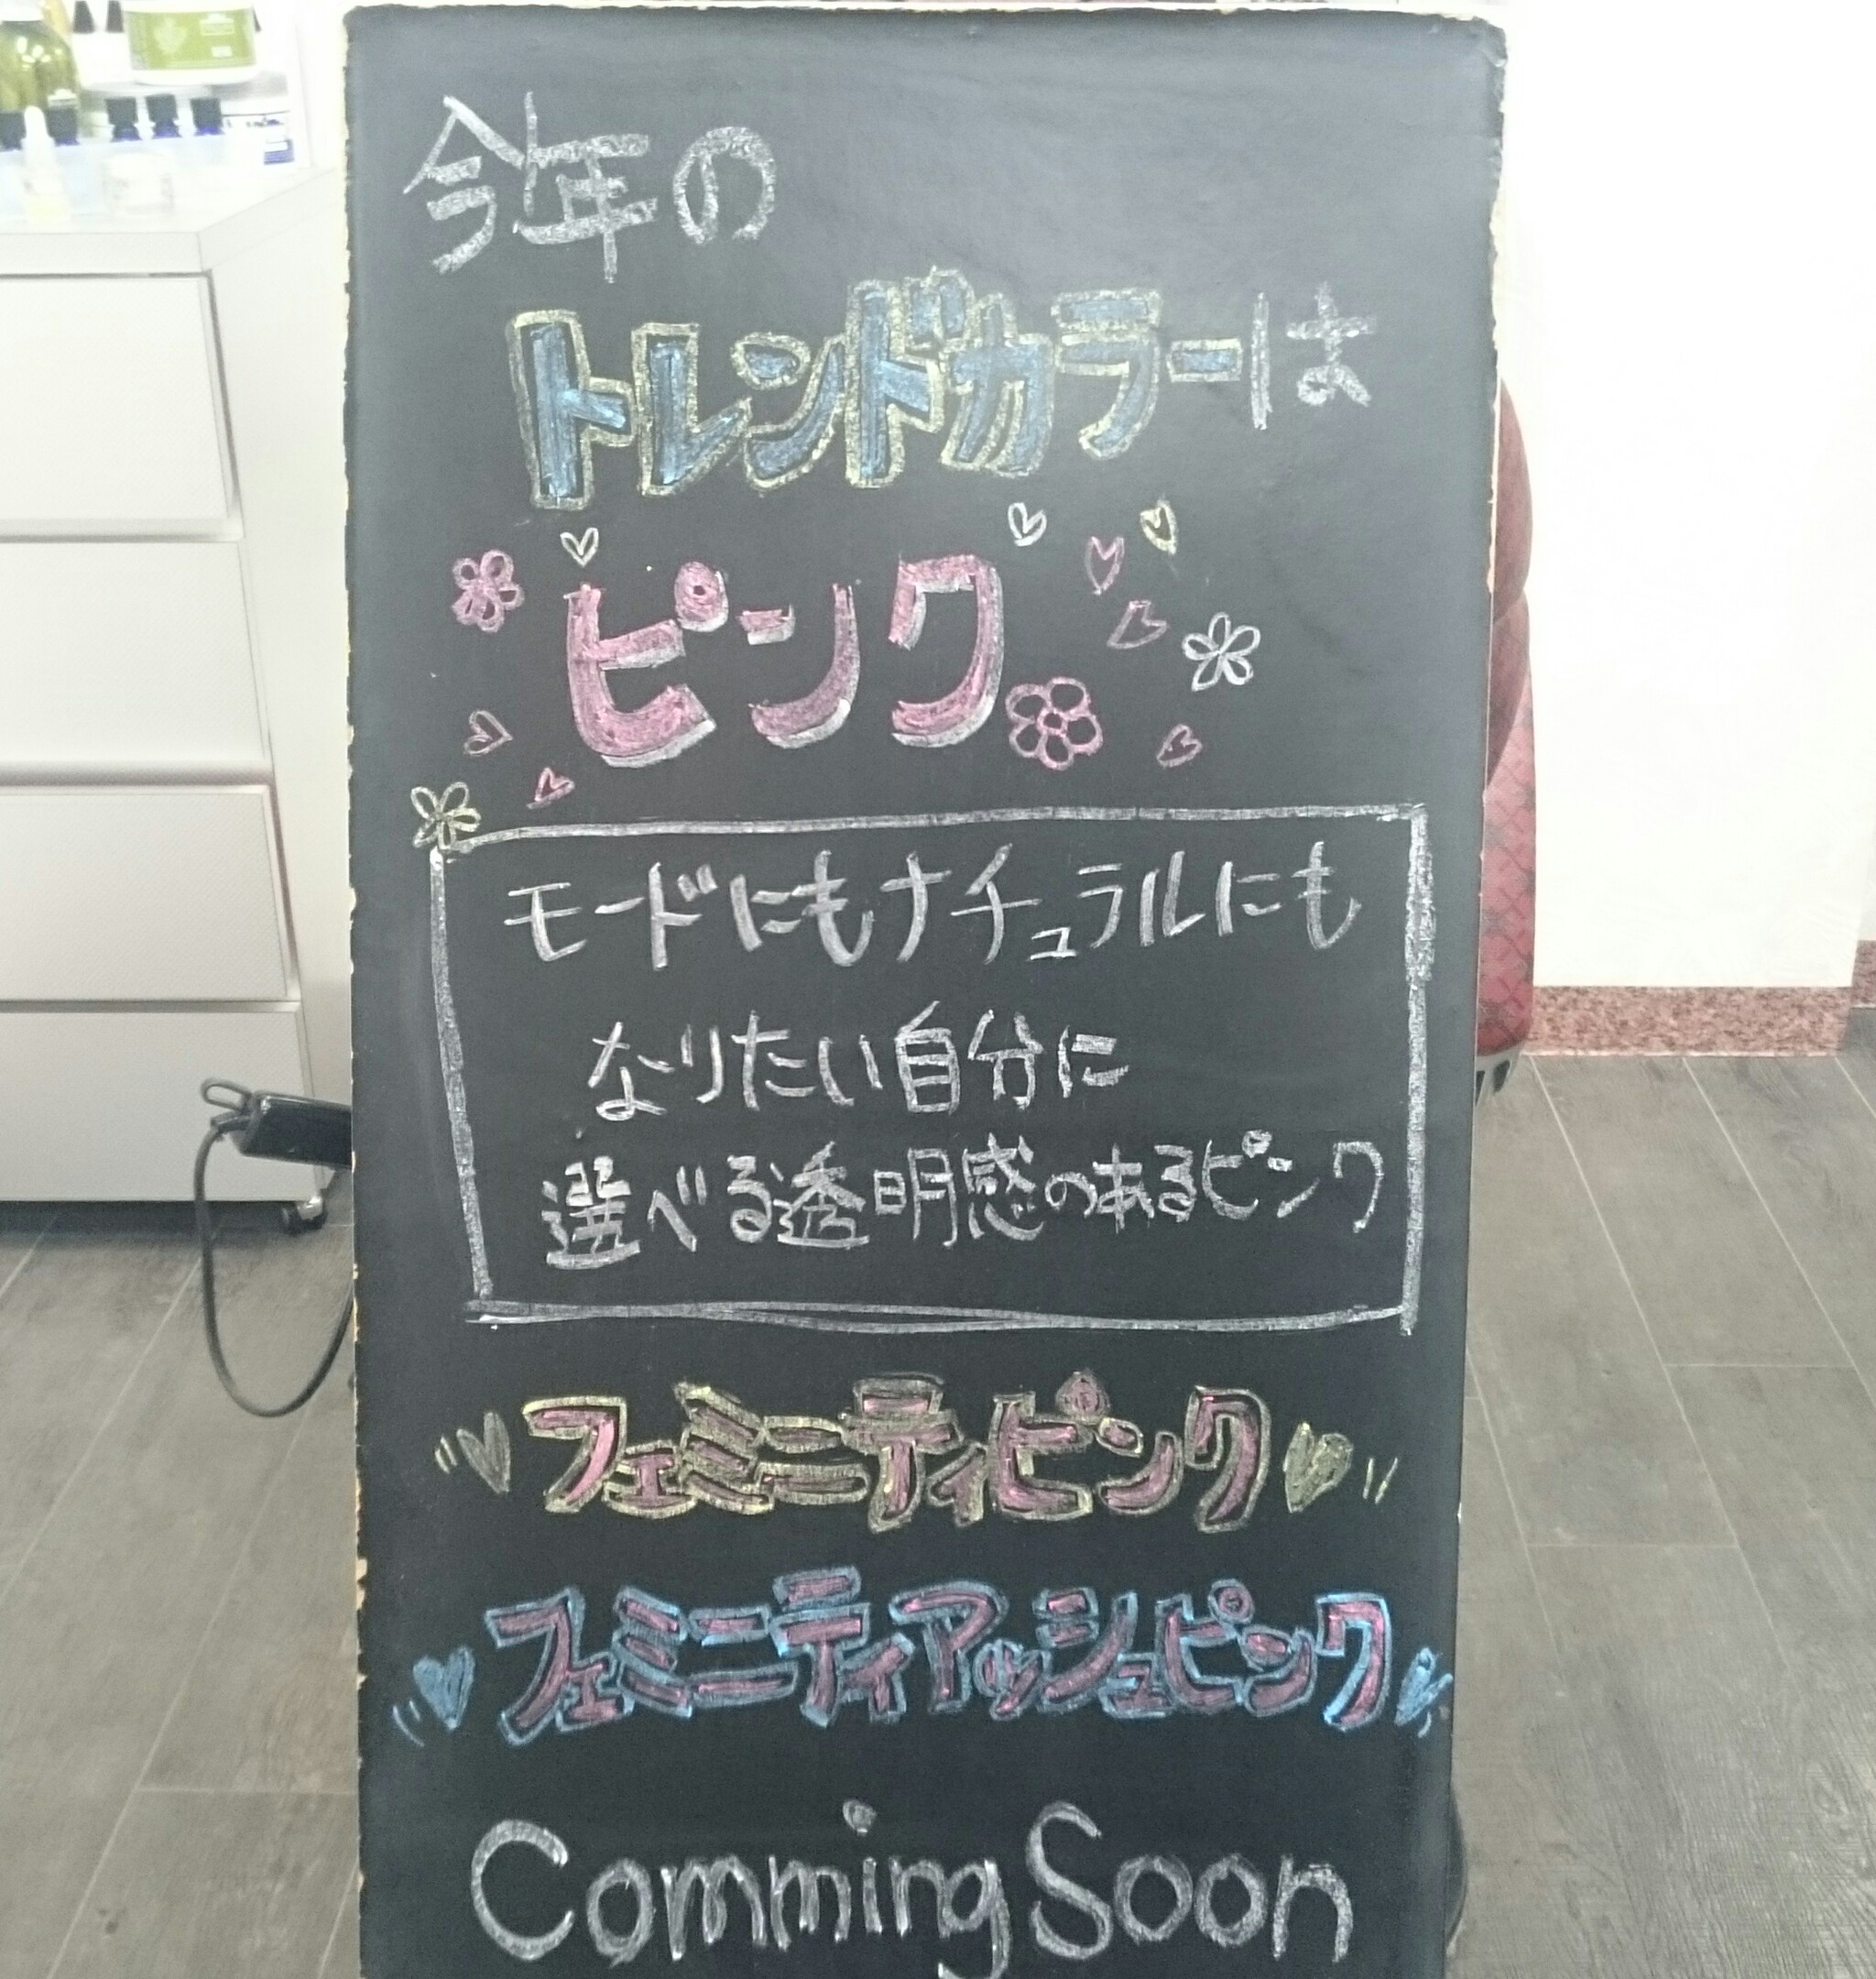 今年の
トレンドカラーは
ピンク
モードにもナチュラルにも
なりたい自分に
選べる透明感のあるピンク
フェミニーティピンク
フェミニーティアッシュピンク
Comming Soon